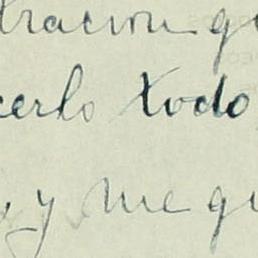 tracion q
cerlo todo
, y me qu